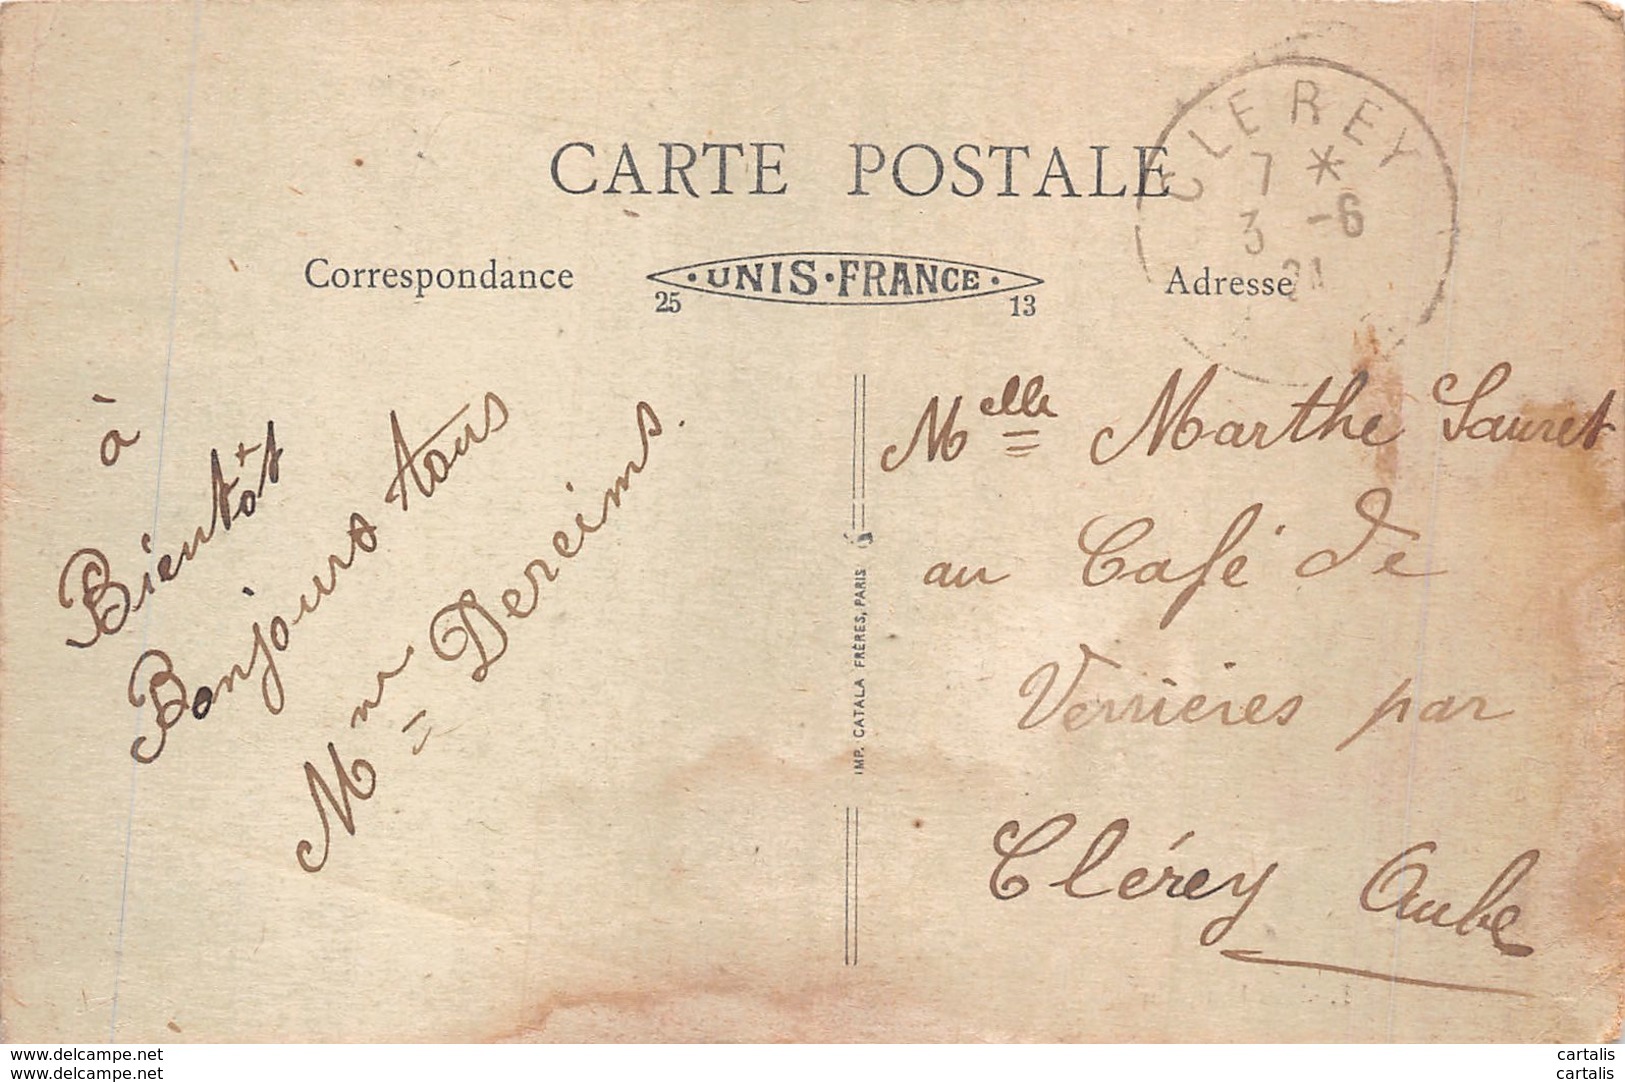 CARTE POSTALE
CLEREY
7 *
3 -6
Correspondance
UNIS · FRANCE
25
13
Adresse
à
Bientôt
Bonjours tous
Mme Dereims.
Melle Marthe Sauret
au Café de
Verrières par
Clérey Aube
IMP. CATALA FRÈRES, PARIS
www.delcampe.net
cartalis
www.delcampe.net
cartalis